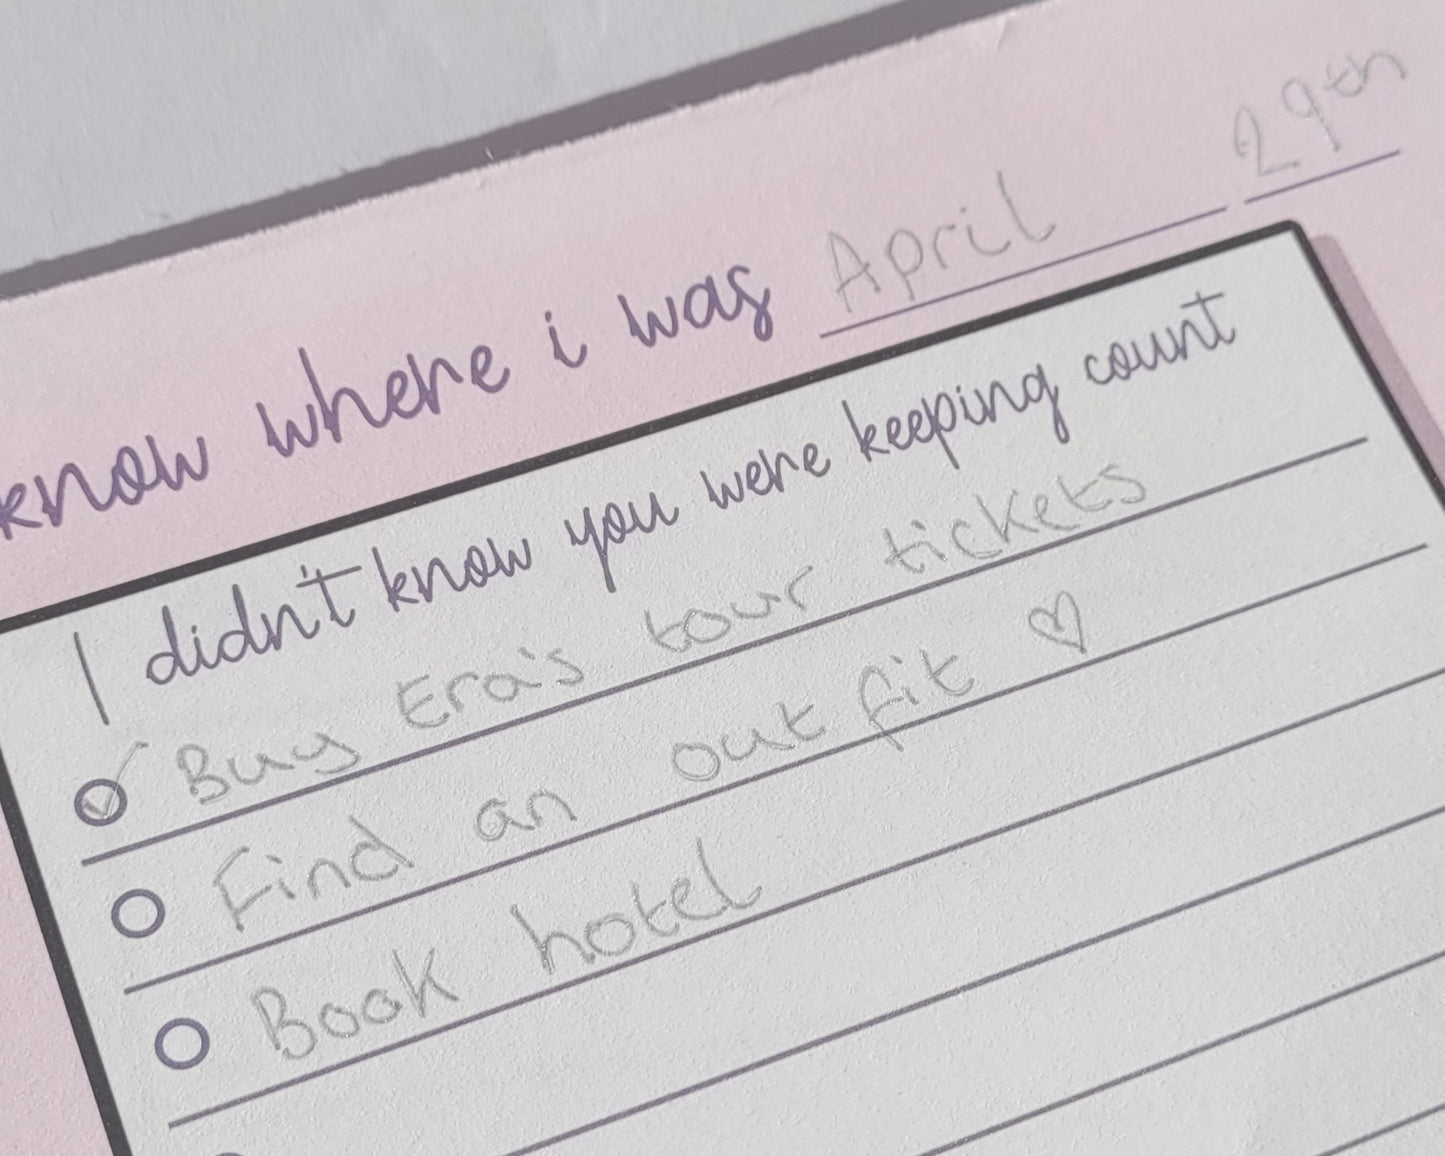 know where i was April 29th
I didn't know you were keeping count
Buy Era's tour tickets
Find an out fit ♡
Book hotel